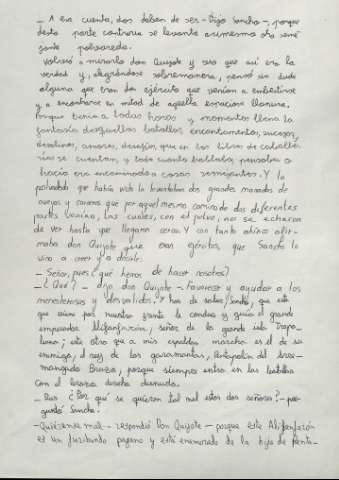 — A esa cuenta, dos deben de ser — dijo Sancho —, porque
desta parte contraria se levanta asimesmo otra seme
jante polvareda.
Volvió a mirarlo don Quijote y vio que así era la
verdad y, alegrándose sobremanera, pensó sin duda
alguna que eran dos ejércitos que venían a embestirse
y a encontrarse en mitad de aquella espaciosa llanura.
Porque tenía a todas horas y momentos llena la
fantasía de aquellas batallas, encantamentos, sucesos,
desatinos, amores, desafíos, que en los libros de caballe
rías se cuentan, y todo cuanto hablaba, pensaba o
hacía era encaminado a cosas semejantes. Y la
polvareda que había visto la levantaban dos grandes manadas de
ovejas y carneros que por aquel mesmo camino de dos diferentes
partes venían, las cuales, con el polvo, no se echaron
de ver hasta que llegaron cerca. Y con tanto ahínco afir-
maba don Quijote que eran ejércitos, que Sancho lo
vino a creer y a decirle:
— Señor, pues ¿qué hemos de hacer nosotros?
— ¿Qué? — dijo don Quijote — Favorecer y ayudar a los
menesterosos y desvalidos. Y has de saber, Sancho, que este
que viene por nuestra frente le conduce y guía el grande
emperador Alifanfarón, señor de la grande isla Trapo-
bana; este otro que a mis espaldas marcha es el de su
enemigo, el rey de los garamantas, Pentapolín del Arre-
mangado Brazo, porque siempre entra en las batallas
con el brazo derecho desnudo.
— Pues ¿Por qué se quieren tal mal estos dos señores? — pre-
guntó Sancho.
— Quiérense mal — respondió Don Quijote — porque este Alifanfarón
es un furibundo pagano y está enamorado de la hija de Penta-